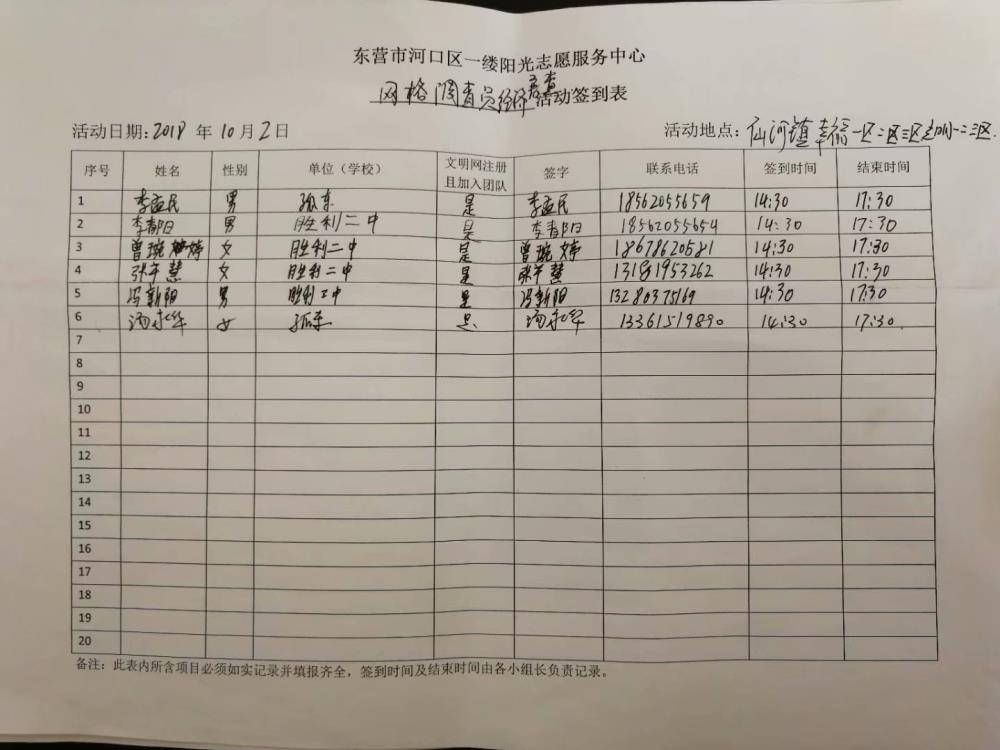 东营市河口区一缕阳光志愿服务中心
网格调查员经济普查活动签到表
活动日期:2018 年 10 月 2 日 活动地点:仙河镇幸福一区二区三区
序号 姓名 性别 单位（学校） 文明网注册且加入团队 签字 联系电话 签到时间 结束时间
1 李孟民 男 孤东 是 李孟民 18562055659 14:30 17:30
2 李春阳 男 胜利二中 是 李春阳 18562055654 14:30 17:30
3 曾琬婷 女 胜利二中 是 曾琬婷 18678620581 14:30 17:30
4 张午慧 女 胜利二中 是 张午慧 13181953262 14:30 17:30
5 冯新阳 男 胜利二中 是 冯新阳 13280375169 14:30 17:30
6 汤永华 女 孤东 是 汤永华 13361519890 14:30 17:30
7
8
9
10
11
12
13
14
15
16
17
18
19
20
备注：此表内所含项目必须如实记录并填报齐全，签到时间及结束时间由各小组长负责记录。